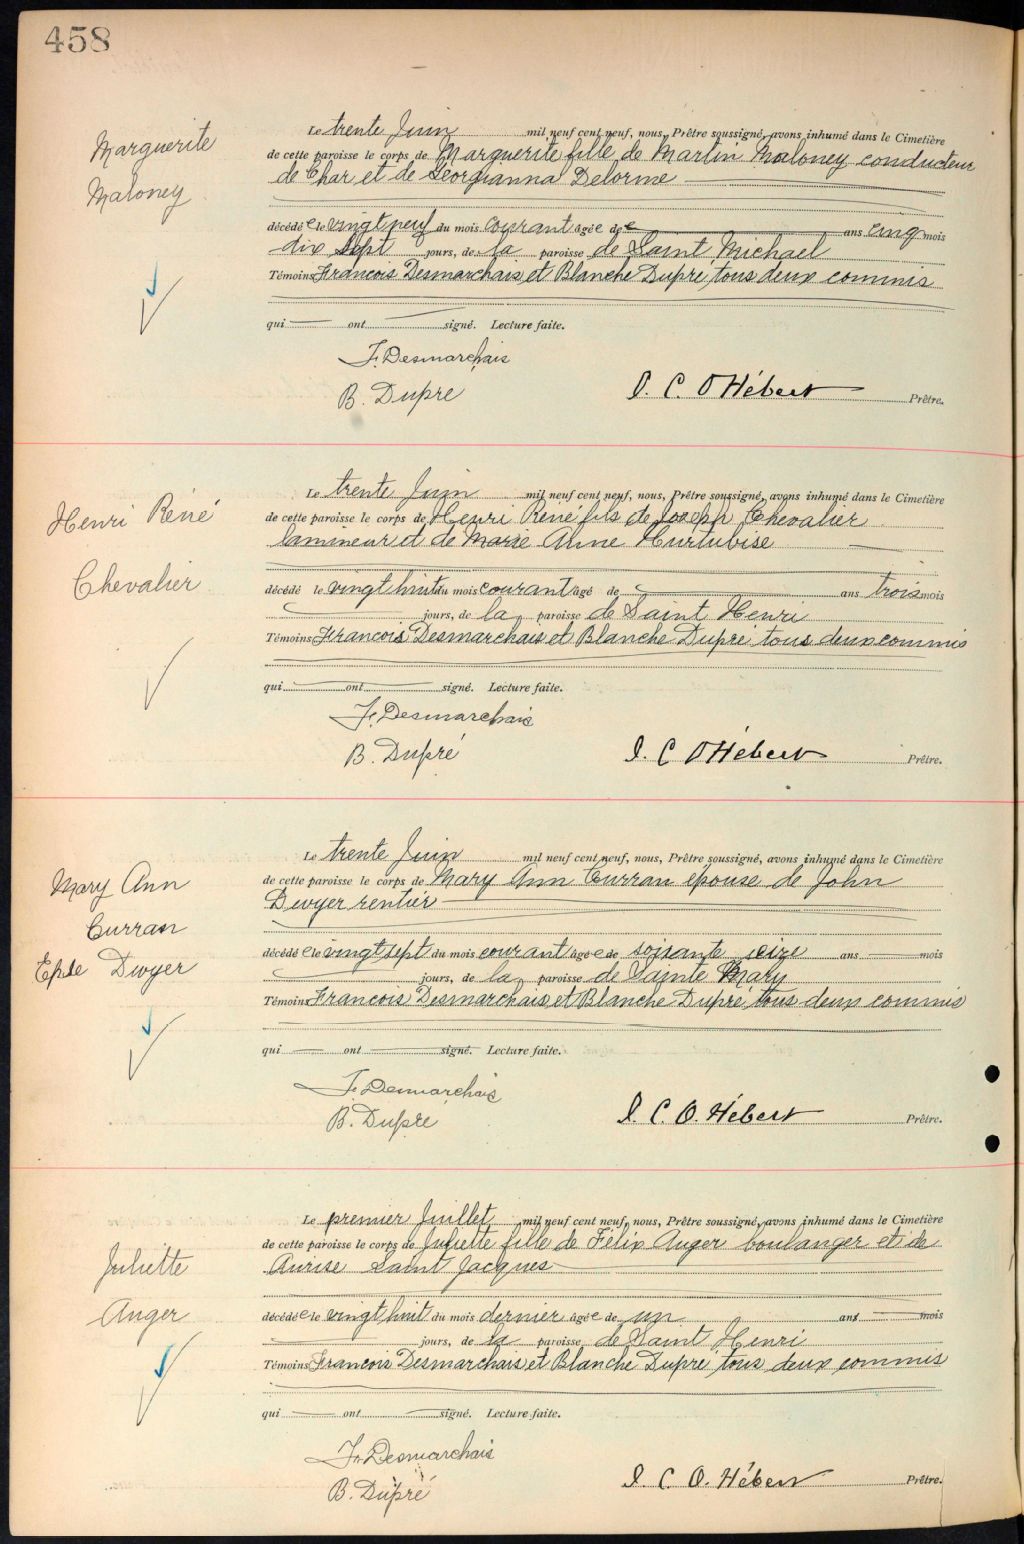 458
Marguerite
Maloney
Le trente Juin mil neuf cent neuf, nous, Prêtre soussigné, avons inhumé dans le Cimetière
de cette paroisse le corps de Marguerite fille de Martin Maloney conducteur
de Char et de Georgianna Delorme
décédée le vingt neuf du mois courant âgée de ans cinq mois
dix sept jours, de la paroisse de Saint Michael
Témoins Francois Desmarchais et Blanche Dupré tous deux commis
qui ont signé. Lecture faite.
F. Desmarchais
B. Dupre
J. C. O Hébert Prêtre.
Henri René
Chevalier
Le trente Juin mil neuf cent neuf, nous, Prêtre soussigné, avons inhumé dans le Cimetière
de cette paroisse le corps de Henri René fils de Joseph Chevalier
lamineur et de Marie Anne Hurtubise
décédé le vingt huit du mois courant âgé de ans trois mois
jours, de la paroisse de Saint Henri
Témoins Francois Desmarchais et Blanche Dupré tous deux commis
qui ont signé. Lecture faite.
F. Desmarchais
B. Dupré
J. C O Hébert Prêtre.
Mary Ann
Curran
Epse Dwyer
Le trente Juin mil neuf cent neuf, nous, Prêtre soussigné, avons inhumé dans le Cimetière
de cette paroisse le corps de Mary Ann Curran épouse de John
Dwyer rentier
décédée le vingt sept du mois courant âgée de soixante seize ans mois
jours, de la paroisse de Sainte Mary
Témoins Francois Desmarchais et Blanche Dupré tous deux commis
qui ont signé. Lecture faite.
F. Desmarchais
B. Dupre
J. C. O. Hébert Prêtre.
Juliette
Anger
Le premier Juillet mil neuf cent neuf, nous, Prêtre soussigné, avons inhumé dans le Cimetière
de cette paroisse le corps de Juliette fille de Félix Anger boulanger et de
Aurise Saint Jacques
décédée le vingt huit du mois dernier âgée de un ans mois
jours, de la paroisse de Saint Henri
Témoins Francois Desmarchais et Blanche Dupré tous deux commis
qui ont signé. Lecture faite.
F. Desmarchais
B. Dupré
J. C. O. Hébert Prêtre.